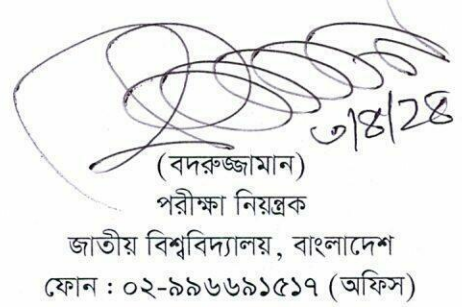 ৩/৪/২৪
(বদরুজ্জামান)
পরীক্ষা নিয়ন্ত্রক
জাতীয় বিশ্ববিদ্যালয়, বাংলাদেশ
ফোন : ০২-৯৯৬৬৯১৫১৭ (অফিস)